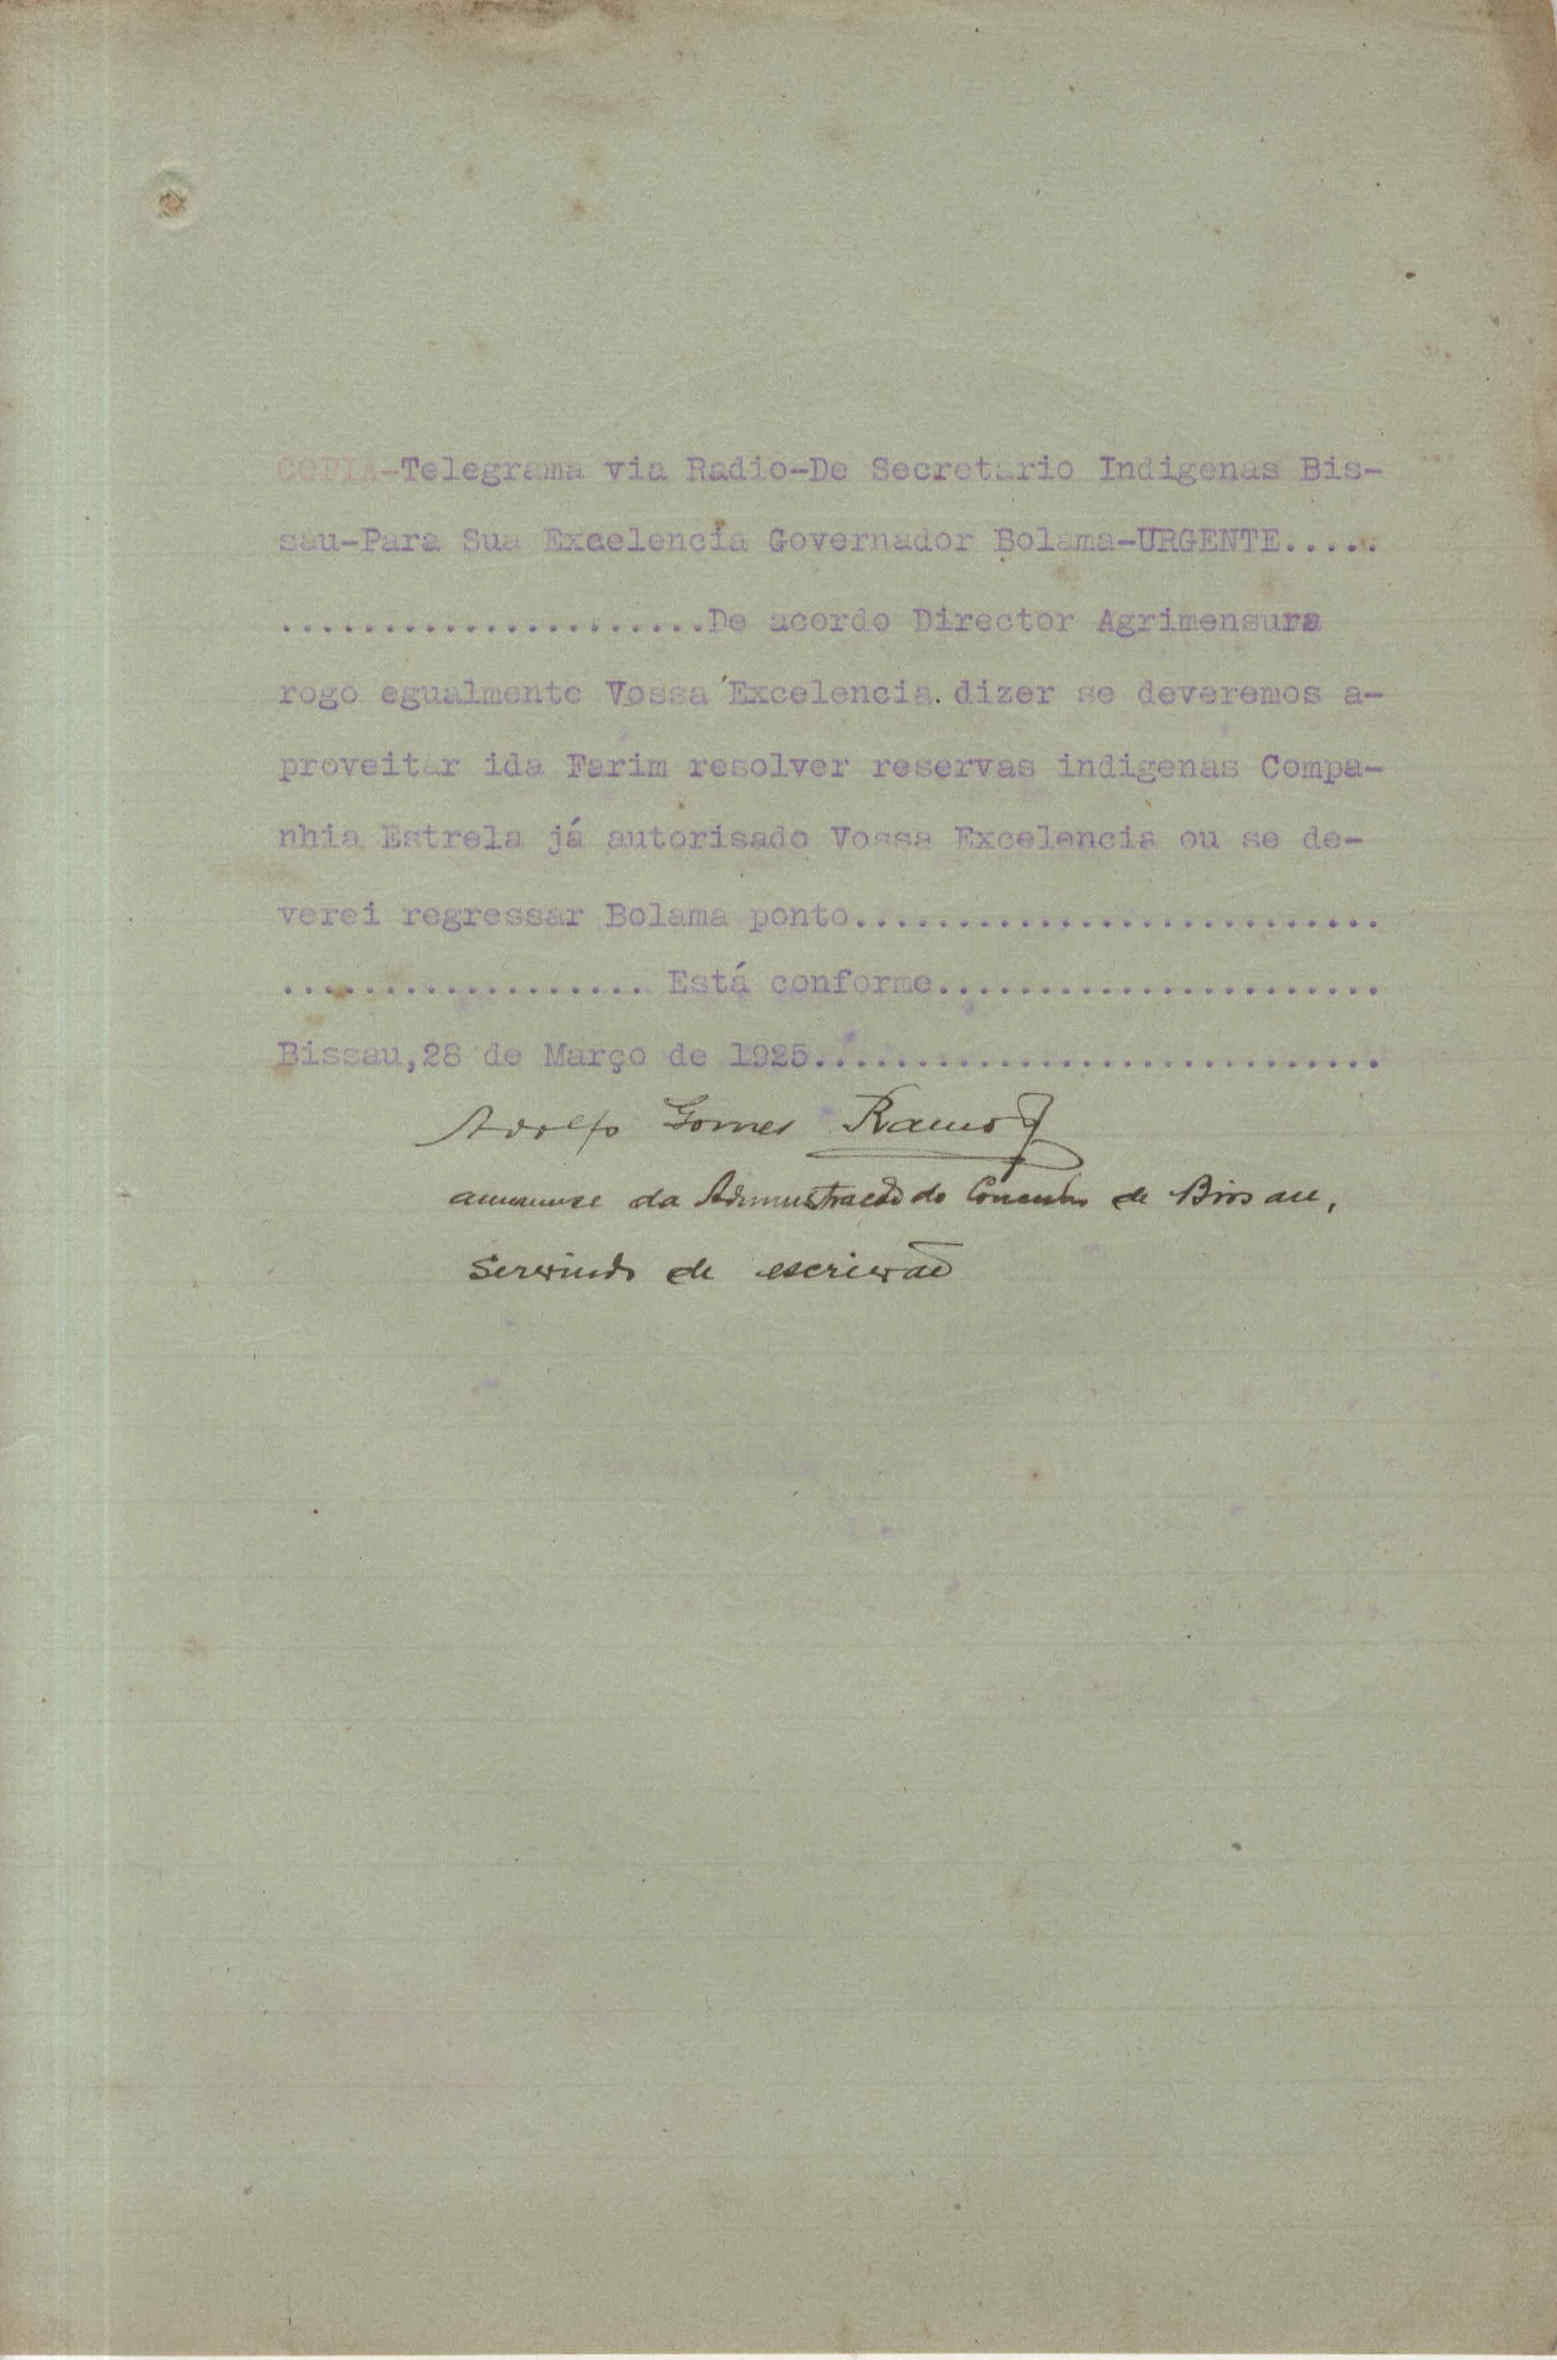 COPIA-Telegrama via Radio-De Secretario Indigenas Bis-
sau-Para Sua Excelencia Governador Bolama-URGENTE.....
.....................De acordo Director Agrimensura
rogo egualmente Vossa Excelencia. dizer se deveremos a-
proveitar ida Farim resolver reservas indigenas Compa-
nhia Estrela já autorisado Vossa Excelencia ou se de-
verei regressar Bolama ponto..........................
.................. Está conforme......................
Bissau,28 de Março de 1925............................
Adolfo Gomes Ramos
amanuense da Administracão do Concelho de Bissau,
Servindo de escrivão